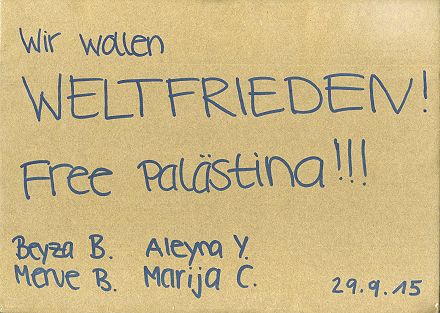 Wir wollen
WELTFRIEDEN!
Free Palästina!!!
Beyza B. Aleyna Y.
Merve B. Marija C.
29.9.15